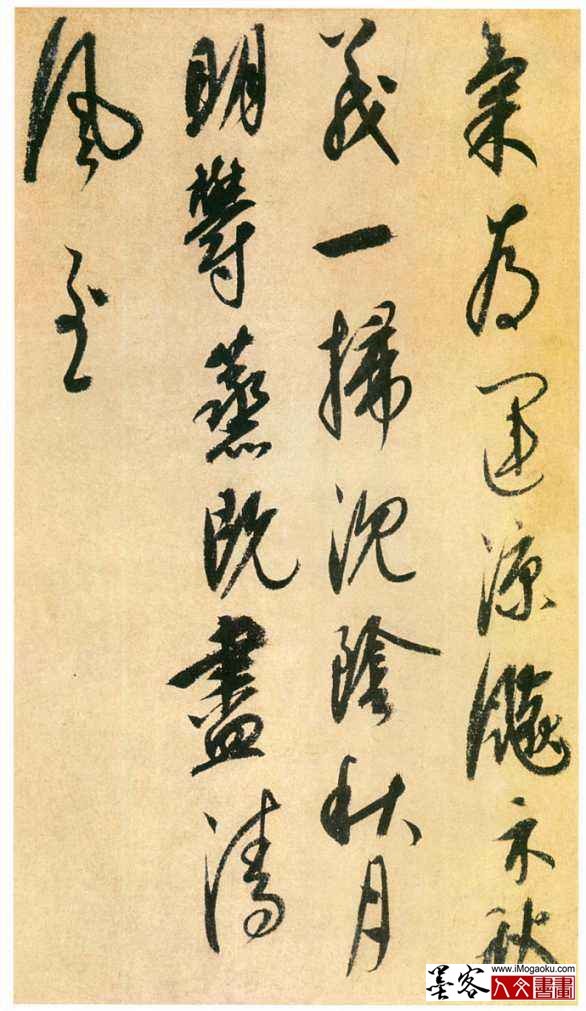 氣為運涼飈示秋
義一掃沈陰秋月
明鬱蒸既盡清
風至
墨客 www.iMogaoku.com
人文書畫